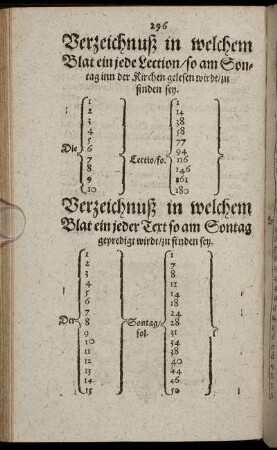 296
Verzeichnuß in welchem
Blat ein jede Lection/so am Son-
tag inn der Kirchen gelesen wirdt/zu
finden sey.
Die
1
2
3
4
5
6
7
8
9
10
Lectio/fo.
1
14
38
58
77
94
116
146
161
180
Verzeichnuß in welchem
Blat ein jeder Text so am Sontag
gepredigt wirdt/zu finden sey.
Der
1
2
3
4
5
6
7
8
9
10
11
12
13
14
15
Sontag/
fol.
1
7
8
11
14
18
24
28
31
34
38
40
44
46
50